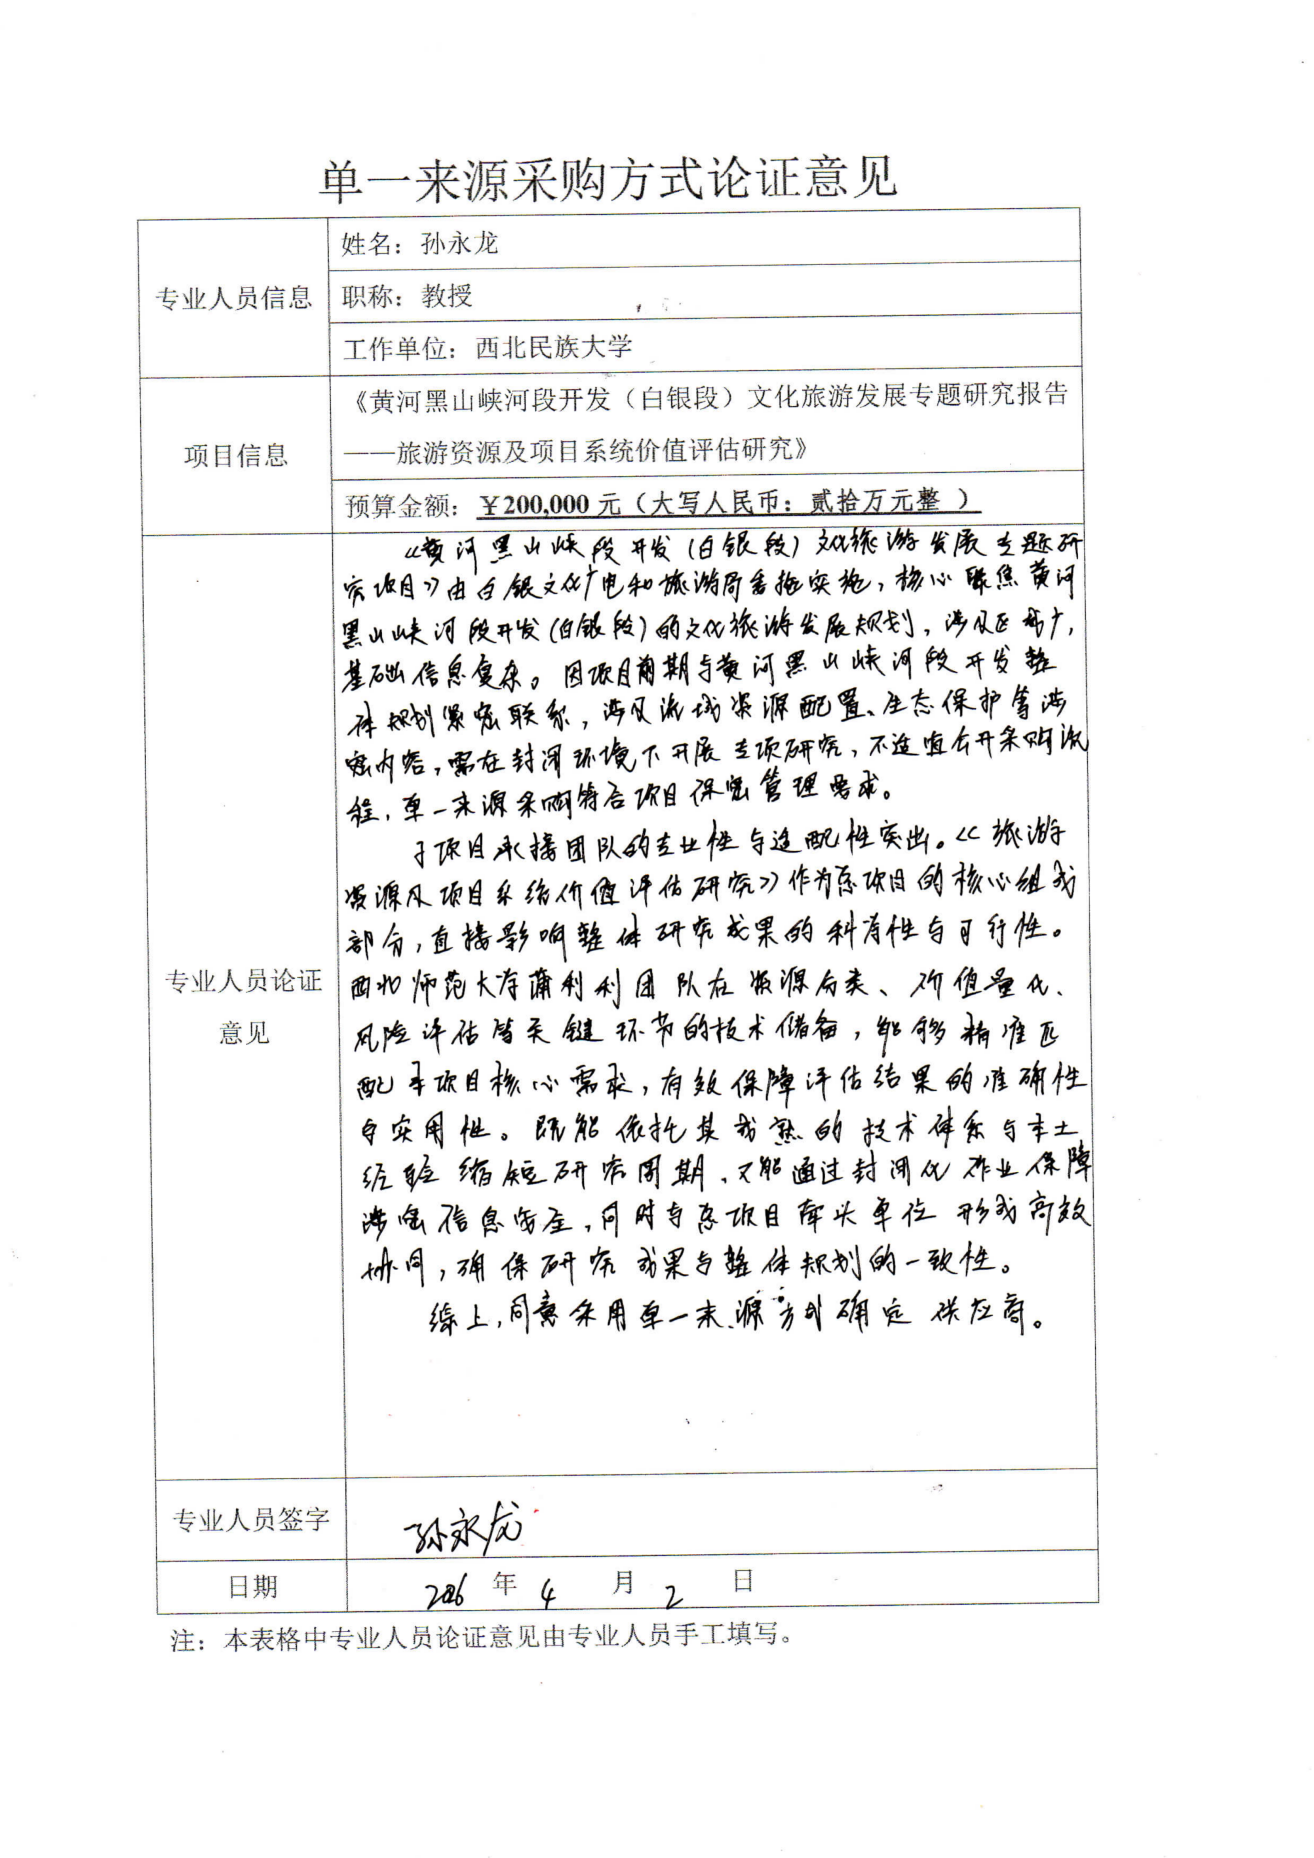 单一来源采购方式论证意见
专业人员信息
姓名：孙永龙
职称：教授
工作单位：西北民族大学
项目信息
《黄河黑山峡河段开发（白银段）文化旅游发展专题研究报告
——旅游资源及项目系统价值评估研究》
预算金额：￥200,000元（大写人民币：贰拾万元整 ）
专业人员论证
意见
《黄河黑山峡段开发(白银段)文化旅游发展专题研
究项目》由白银文化广电和旅游局委托实施，核心聚焦黄河
黑山峡河段开发(白银段)的文化旅游发展规划，涉及区域广，
基础信息复杂。因项目前期与黄河黑山峡河段开发整
体规划紧密联系，涉及流域资源配置、生态保护等涉
密内容，需在封闭环境下开展专项研究，不适宜公开采购流
程，单一来源采购符合项目保密管理要求。
子项目承接团队的专业性与适配性突出。《旅游
资源及项目系统价值评估研究》作为总项目的核心组成
部分，直接影响整体研究成果的科学性与可行性。
西北师范大学蒲利利团队在资源分类、价值量化、
风险评估等关键环节的技术储备，能够精准匹
配子项目核心需求，有效保障评估结果的准确性
与实用性。既能依托其成熟的技术体系与本土
经验缩短研究周期，又能通过封闭化作业保障
涉密信息安全，同时与总项目牵头单位形成高效
协同，确保研究成果与整体规划的一致性。
综上，同意采用单一来源方式确定供应商。
专业人员签字
孙永龙
日期
2026年4月2日
注：本表格中专业人员论证意见由专业人员手工填写。